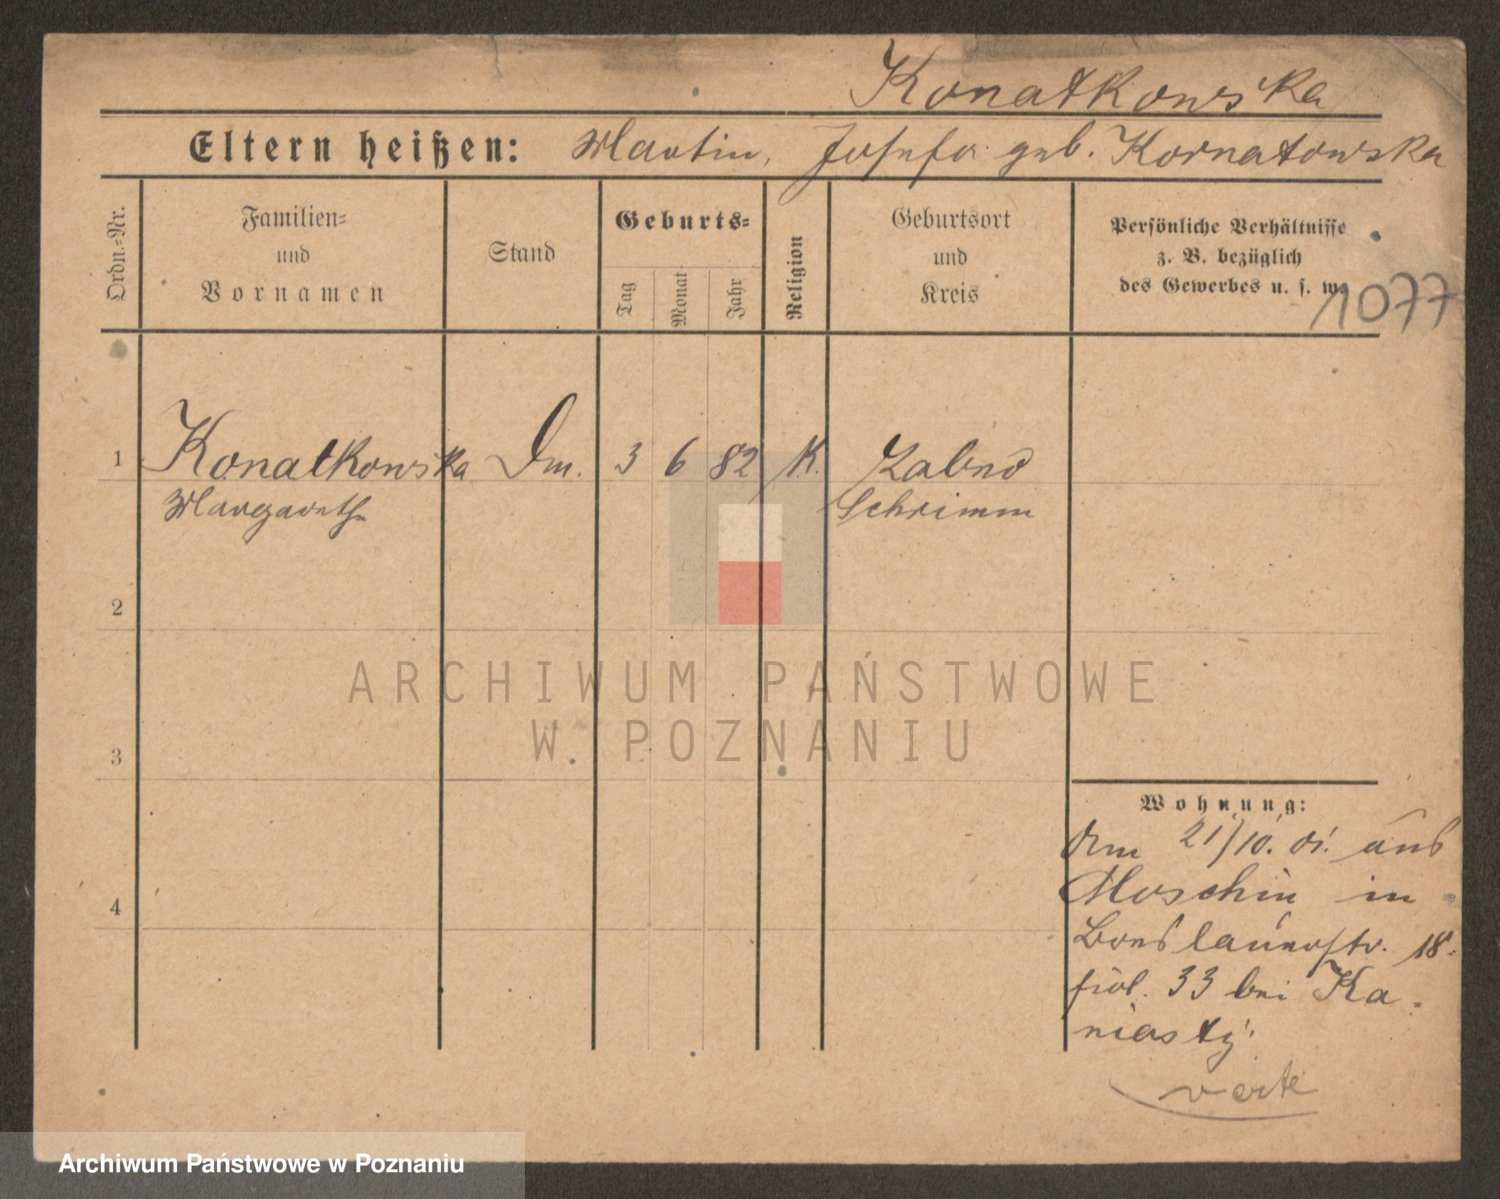 Konatkowska
Eltern heißen: Martin, Josefa geb. Kornatowska
Ordn.-Nr.
Familien-
und
Vornamen
Stand
Geburts-
Tag
Monat
Jahr
Religion
Geburtsort
und
Kreis
Persönliche Verhältnisse
z. B. bezüglich
des Gewerbes u. s. w.
1077
1 Konatkowska Dm. 3 6 82 K. Zabno
Margarethe Schrimm
2
3
4
Wohnung:
21/10. 01. aus
Moschin in
Breslauerstr. 18.
fról. 33 bei Ka-
niasty.
verte
ARCHIWUM PAŃSTWOWE
W POZNANIU
Archiwum Państwowe w Poznaniu